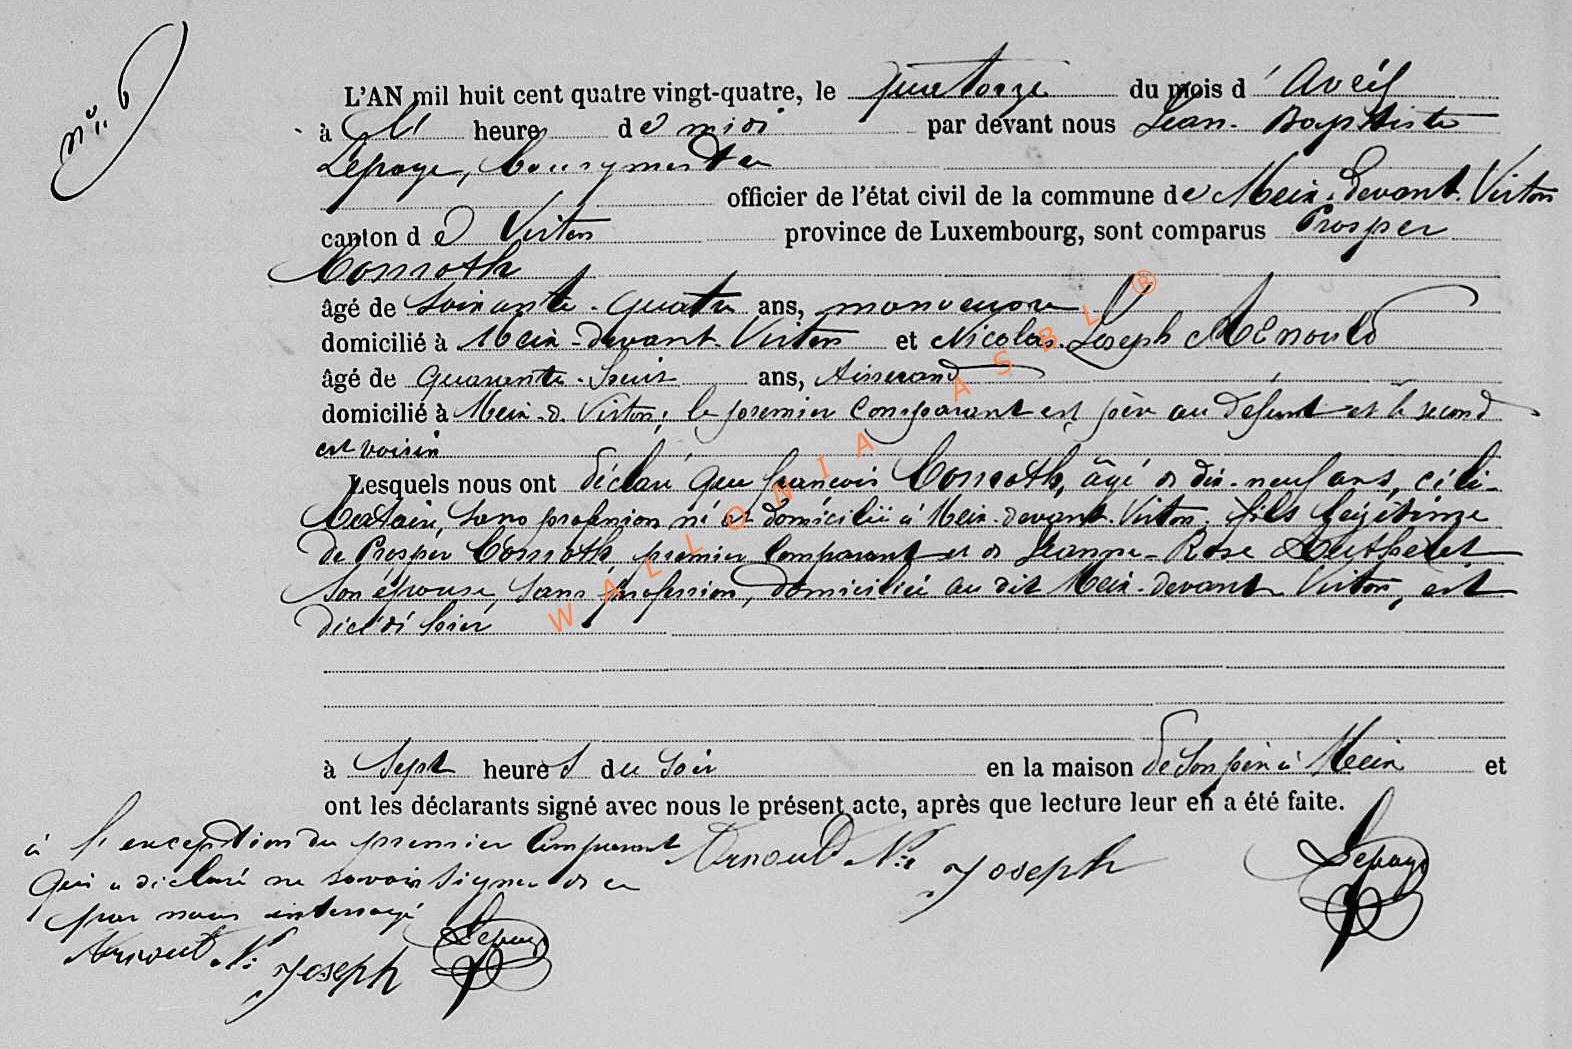 n° 6
L'AN mil huit cent quatre vingt-quatre, le quatorze du mois d'Avril
à l' heure de midi par devant nous Jean-Baptiste
Lepage, Bourgmestre
officier de l'état civil de la commune de Meix-devant-Virton
canton de Virton province de Luxembourg, sont comparus Prosper
Conroth
âgé de soixante-quatre ans, manoeuvre
domicilié à Meix-devant-Virton et Nicolas Joseph Arnould
âgé de quarante-huit ans, tisserand
domicilié à Meix-d-Virton; le premier comparant est père au défunt et le second
est voisin
Lesquels nous ont déclaré que françois Conroth, âgé de dix-neuf ans, céli-
bataire, sans profession né et domicilié à Meix-devant-Virton, fils légitime
de Prosper Conroth, premier comparant et de Jeanne-Rose
son épouse, sans profession, domiciliée au dit Meix-devant Virton, est
décédé hier
à sept heures du soir en la maison de son père à Meix et
ont les déclarants signé avec nous le présent acte, après que lecture leur en a été faite.
à l'exception du premier comparant
qui a déclaré ne savoir signer de ce
par nous interrogé
Arnould N: Joseph
Lepage
Arnould N: Joseph
Lepage
WALLONIA ASBL ®